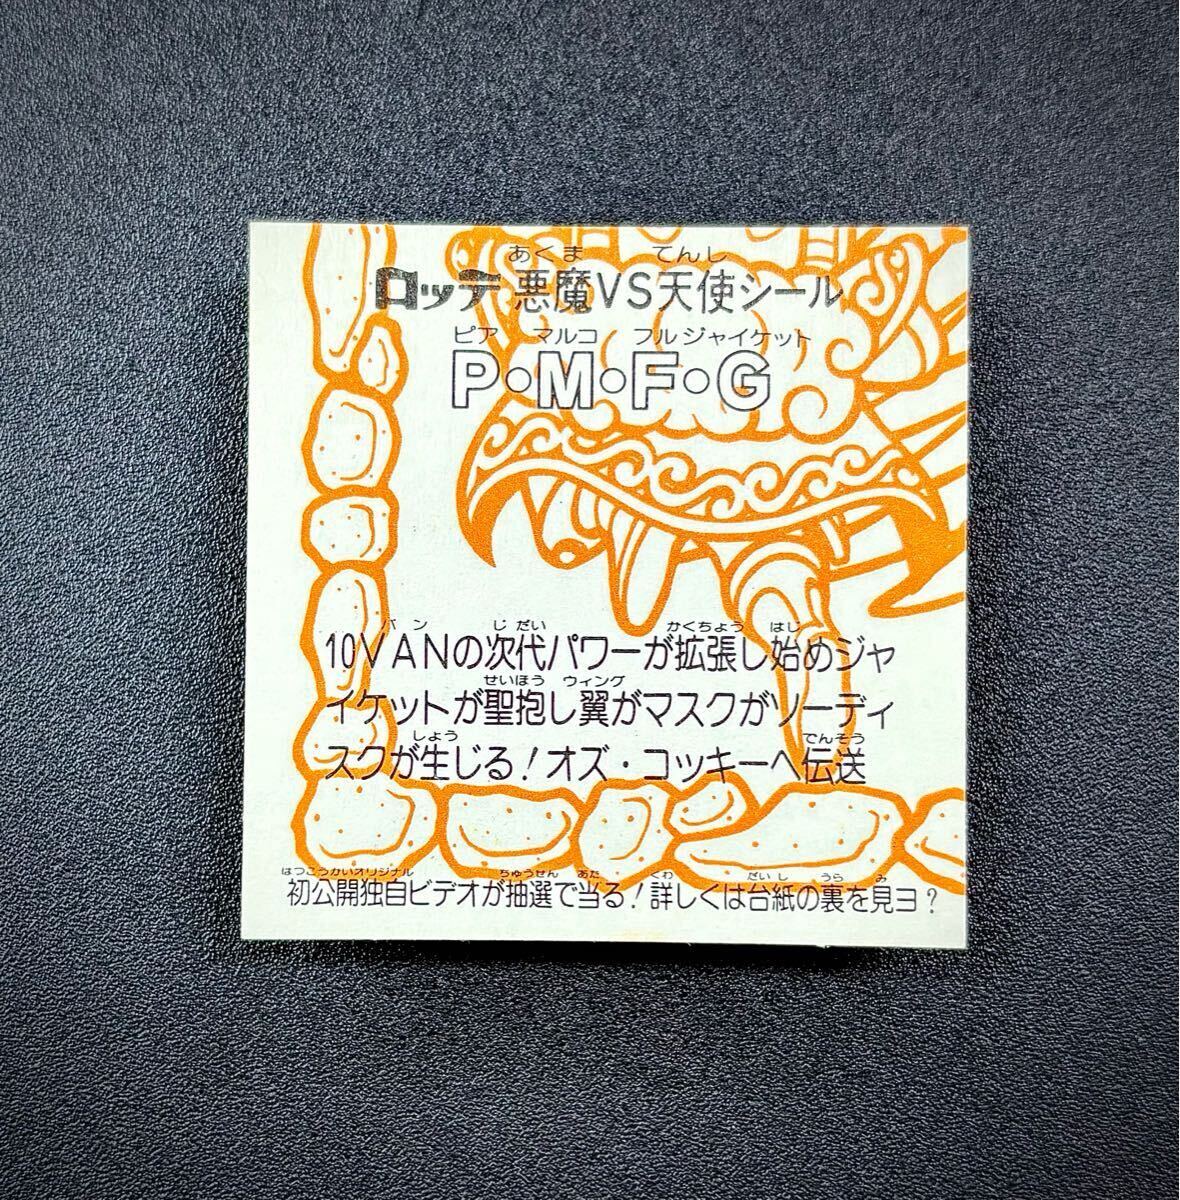 あくま てんし
ロッテ 悪魔VS天使シール
ピア マルコ フルジャイケット
P・M・F・G
バン じだい かくちょう はじ
10VANの次代パワーが拡張し始めジャ
せいほう ウィング
イケットが聖抱し翼がマスクがソーディ
しょう でんそう
スクが生じる!オズ・コッキーへ伝送
はつこうかいオリジナル ちゅうせん あた くわ だいし うら み
初公開独自ビデオが抽選で当る!詳しくは台紙の裏を見ヨ?